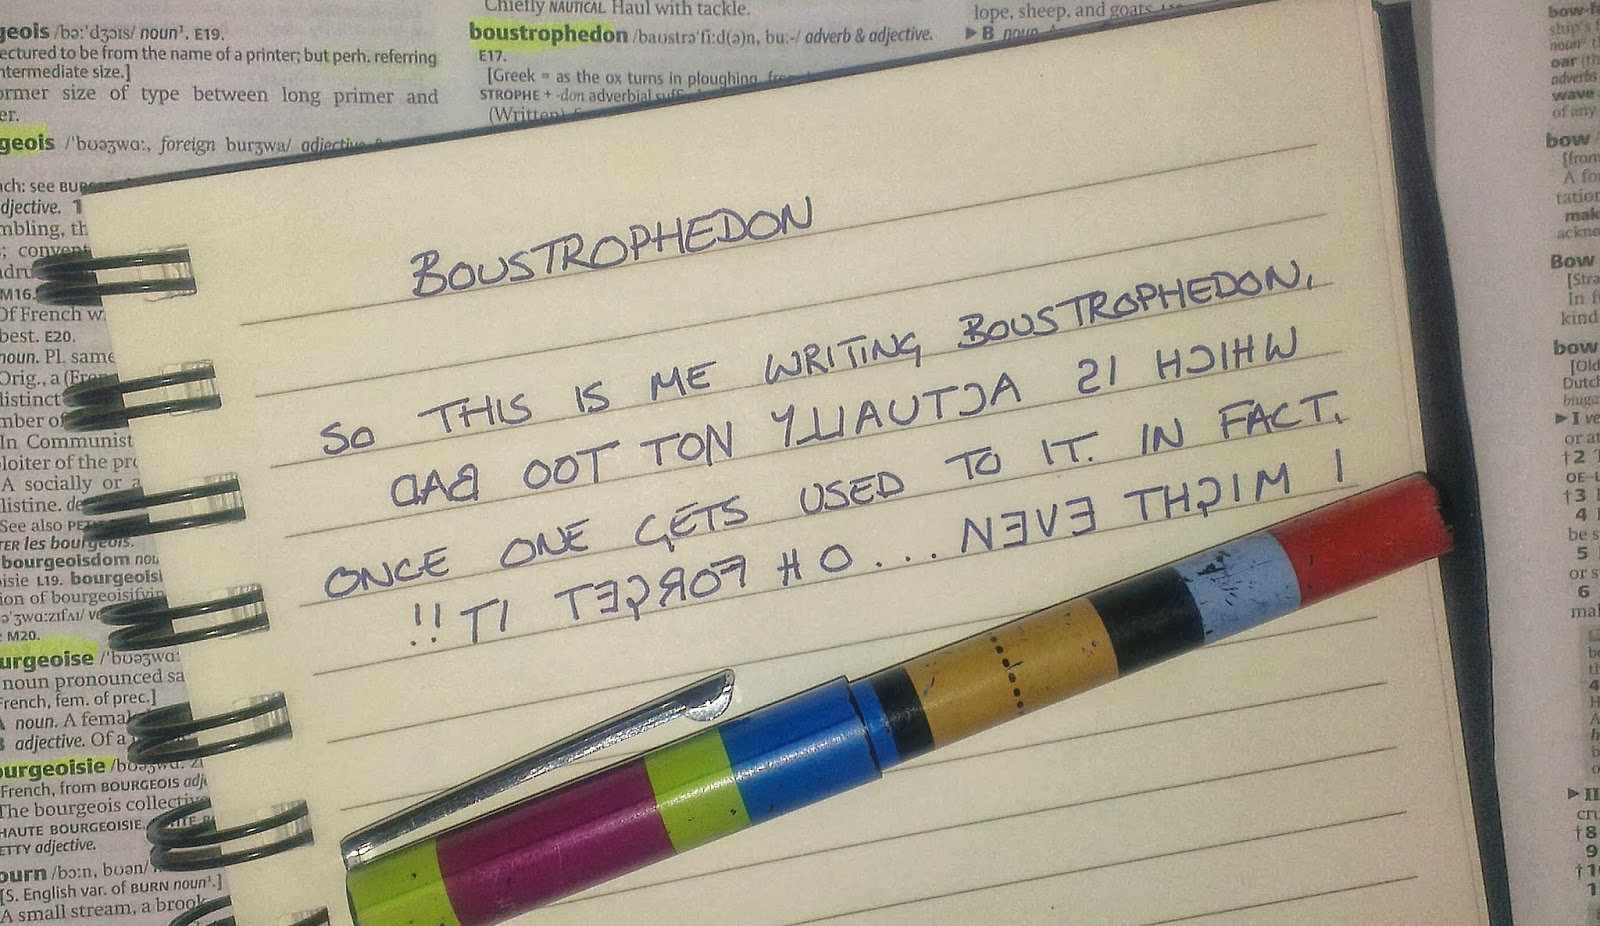 geois /bəːˈdʒɔɪs/ noun¹. E19.
ectured to be from the name of a printer; but perh. referring
ntermediate size.]
ormer size of type between long primer and
er.
geois /ˈbʊəʒwɑː, foreign burʒwa/ adjective
ach: see
djective. 1
mbling, th
; conven
M16.
Of French w
best. E20.
noun. Pl. same
Orig., a (Fren
distinct
mber of
In Communist
loiter of the pro
A socially or a
listine. de
See also
TER les bourgeois.
bourgeoisdom
oisie L19. bourgeoisi
ion of bourgeoisifyin
M20.
urgeoise /ˈbʊəʒwɑː
noun pronounced sa
French, fem. of prec.]
A noun. A femal
B adjective. Of a
ourgeoisie
French, from BOURGEOIS adj
The bourgeois collective
HAUTE BOURGEOISIE.
ETTY adjective.
ourn /bɔːn, bʊən/
[S. English var. of BURN noun¹.]
A small stream, a brook
Chiefly NAUTICAL. Haul with tackle.
boustrophedon /baʊstrəˈfiːd(ə)n, buː-/ adverb & adjective.
E17.
[Greek = as the ox turns in ploughing,
STROPHE + -don adverbial
(Written)
lope, sheep, and goats
▶ B noun
BOUSTROPHEDON
SO THIS IS ME WRITING BOUSTROPHEDON,
WHICH IS ACTUALLY NOT TOO BAD
ONCE ONE GETS USED TO IT. IN FACT,
I MIGHT EVEN... OH FORGET IT!!
bow-f
ship's
noun
oar (th
adverbs
wave
of any
bow /
[from
A fo
tation
mak
ackno
Bow
[Stra
In f
kind
bow
[Old
Dutch
▶ I ve
or at
†2
OE–L
†3
4
be s
5
or s
6
mal
▶ II
cru
†8
9
†1
1